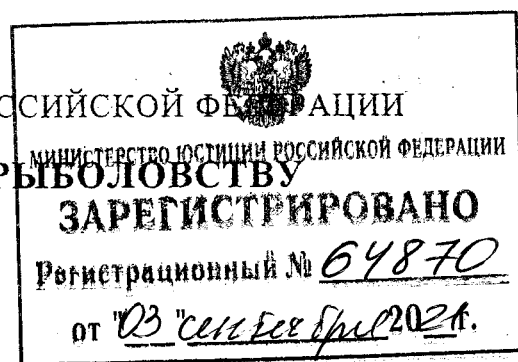 ССИЙСКОЙ ФЕДЕРАЦИИ
МИНИСТЕРСТВО ЮСТИЦИИ РОССИЙСКОЙ ФЕДЕРАЦИИ
РЫБОЛОВСТВУ
ЗАРЕГИСТРИРОВАНО
Регистрационный № 64870
от "03" сентября 2021г.